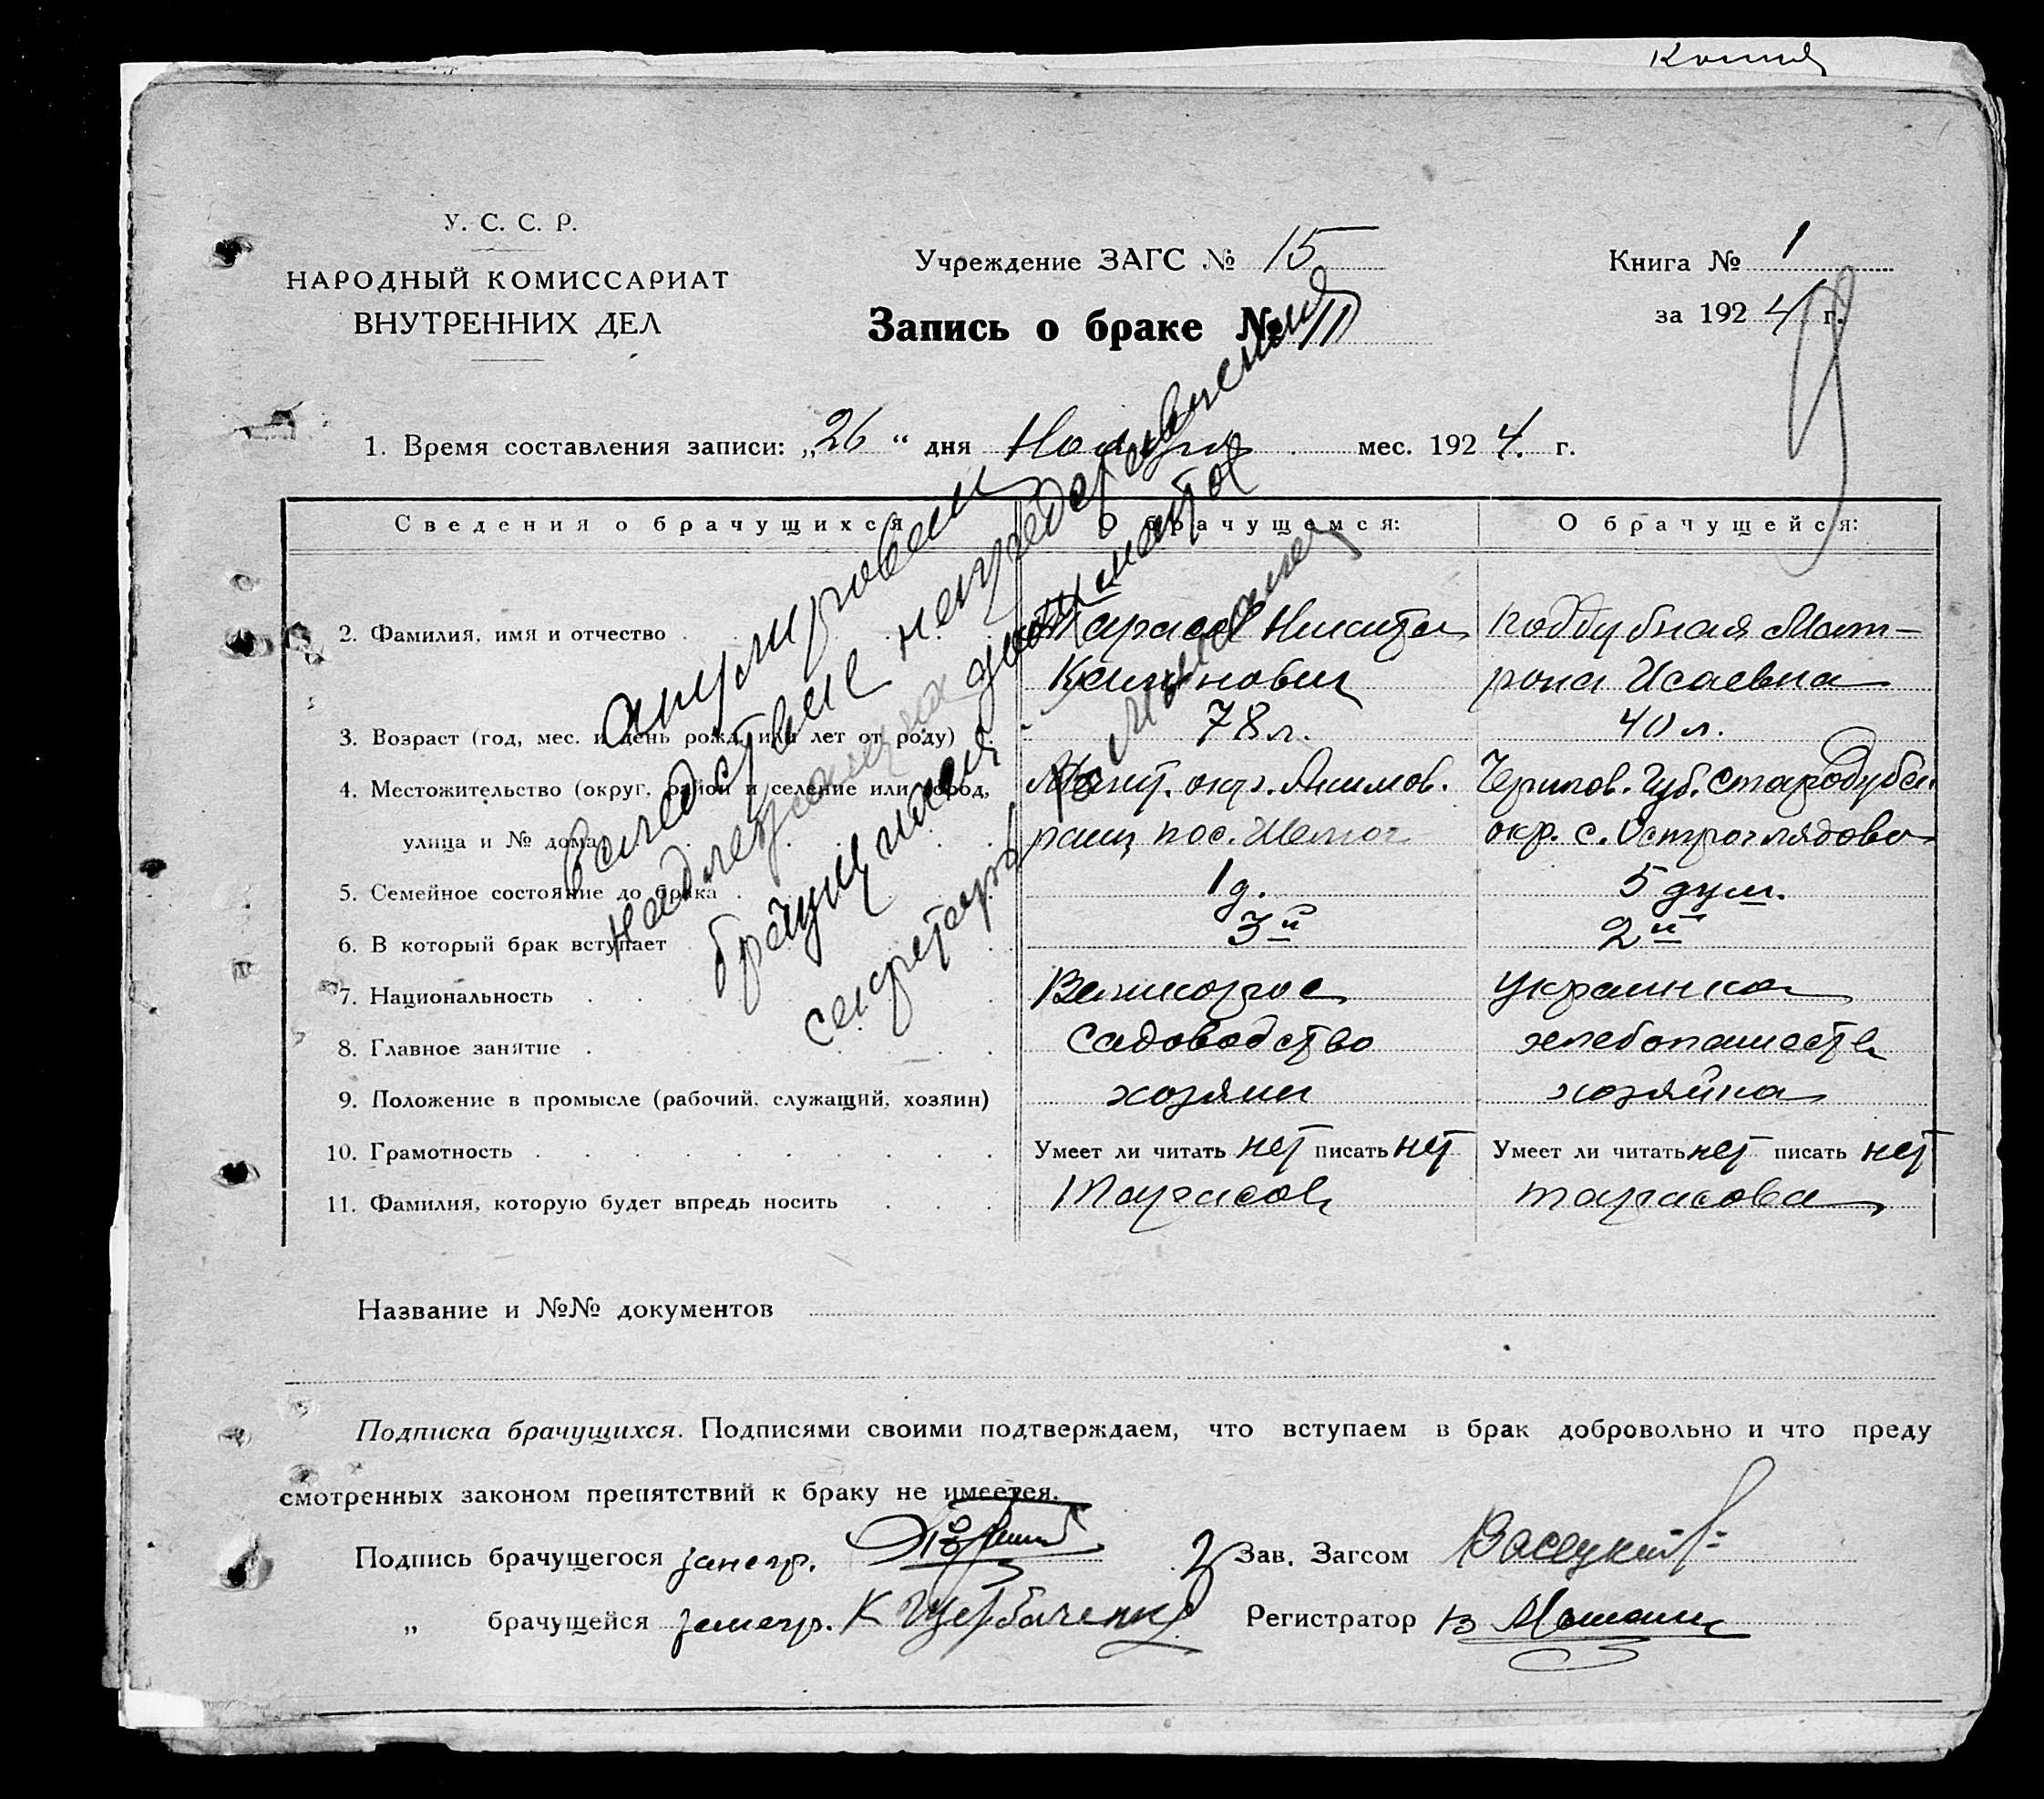 Копия
У. С. С. Р.
НАРОДНЫЙ КОМИССАРИАТ
ВНУТРЕННИХ ДЕЛ
Учреждение ЗАГС № 15
Запись о браке № 11
Книга № 1
за 1924 г.
1. Время составления записи: „26“ дня Ноября мес. 1924. г.
Сведения о брачущихся
О брачущемся:
О брачущейся:
2. Фамилия, имя и отчество . Тарасов Никита Поддубная Мат-
рона Исаевна
3. Возраст (год, мес. и день рожд. или лет от роду) 78 л. 40 л.
4. Местожительство (округ, район и селение или город, Мелит. окр. Акимов. Чернигов. Губ. Стародубск.
улица и № дома) . пос. окр. с. Остроглядово
5. Семейное состояние до брака . 1 д. 5 душ.
6. В который брак вступает . 3й 2й
7. Национальность . Великорос Украинка
8. Главное занятие . садоводство хлебопашеств
9. Положение в промысле (рабочий, служащий, хозяин) хозяин хозяйка
10. Грамотность . Умеет ли читать нет писать нет Умеет ли читать нет писать нет
11. Фамилия, которую будет впредь носить . . . Тарасов Тарасова
анулирован
вследствие непредставления
надлежащих документов
брачущимися
секретарь
Название и №№ документов
Подписка брачущихся. Подписями своими подтверждаем, что вступаем в брак добровольно и что преду
смотренных законом препятствий к браку не имеется.
Подпись брачущегося занегр. Зав. Загсом Васецкий
„ брачущейся занегр. К Щербаченко Регистратор В